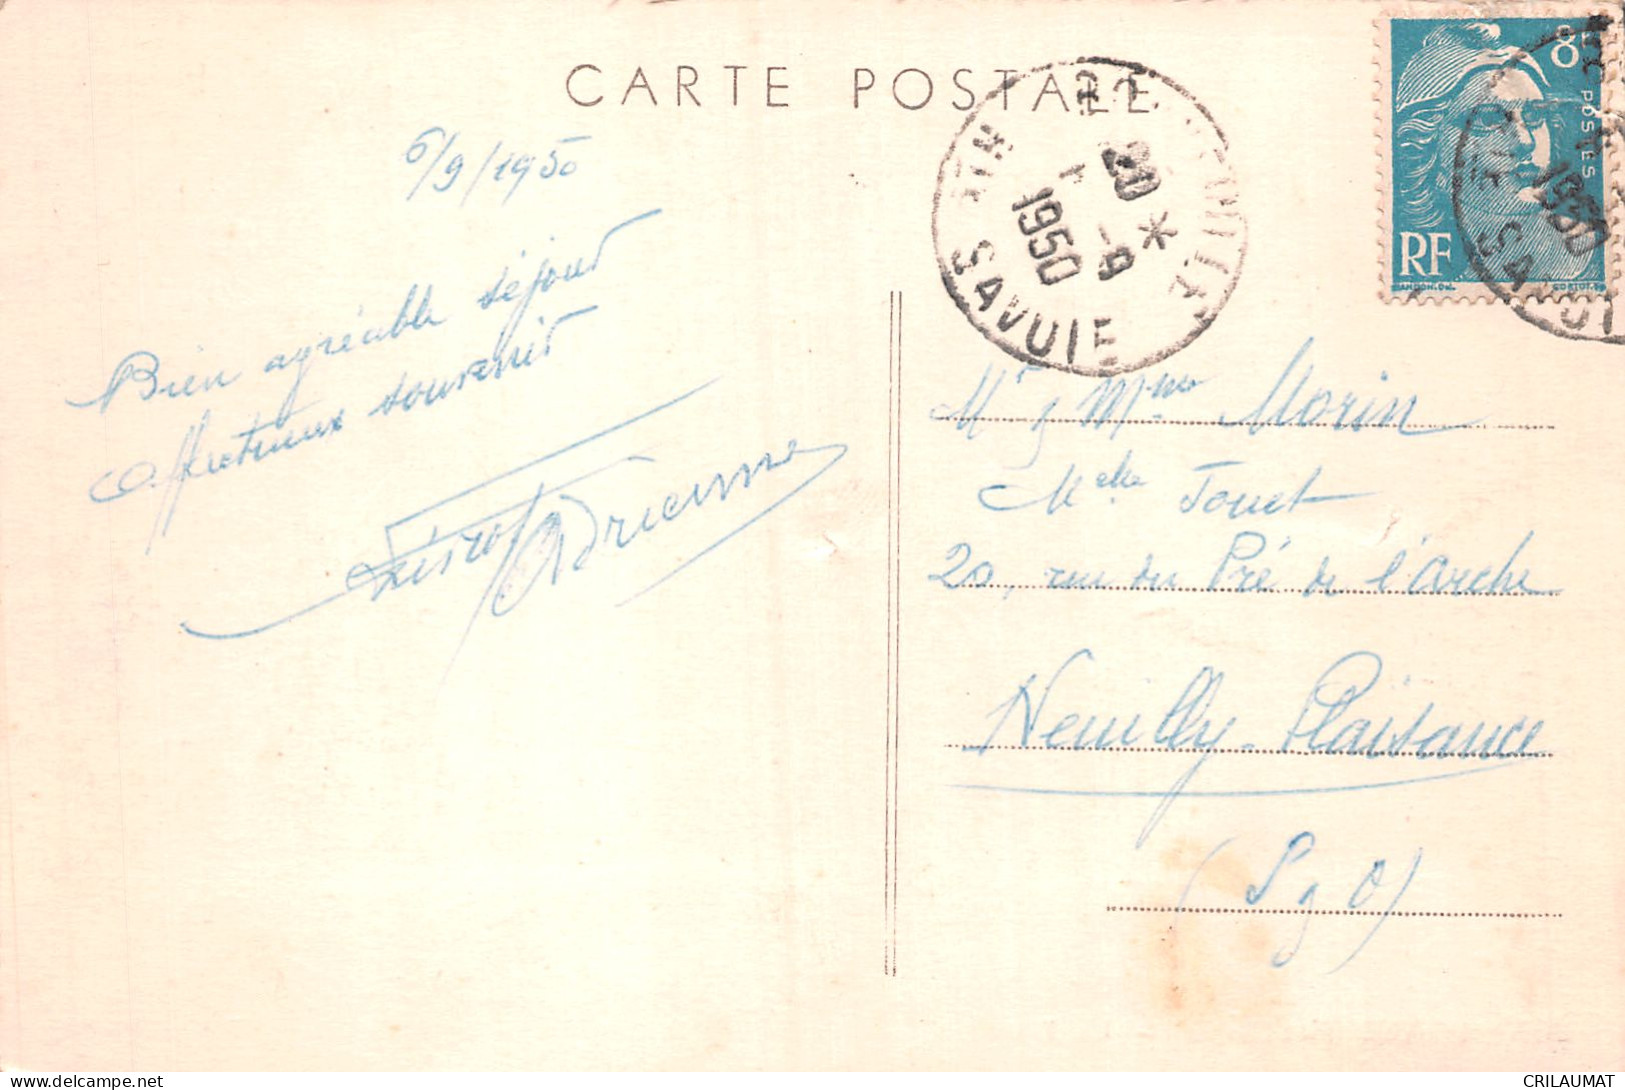 CARTE POSTALE
6/9/1950
Bien agréable séjour
Affectueux souvenir
Adrienne
20
1950
SAVOIE
8F
POSTES
RF
1950
SAVOI
GANDON.DEL.
CORTOT.SC
Mr & Mme Morin
Melle Jouet
20, rue du Pré de l'Arche
Neuilly-Plaisance
(S & O)
delcampe.net
CRILAUMAT